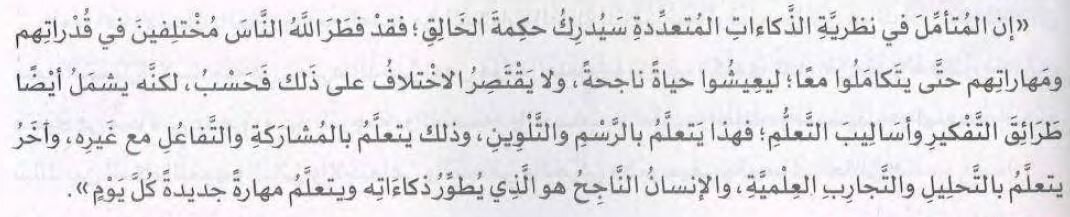 «إن المُتأمِّلَ في نظريَّةِ الذَّكاءاتِ المُتعدِّدةِ سَيُدرِكُ حكمةَ الخَالِقِ؛ فقدْ فطَرَ اللهُ النَّاسَ مُخْتلِفينَ في قُدْراتِهم
ومَهاراتِهم حتَّى يتَكامَلُوا معًا؛ ليعِيشُوا حياةً ناجحةً، ولا يَقْتَصِرُ الاخْتلافُ على ذَلك فَحَسْبُ، لكنَّه يشمَلُ أيْضًا
طَرائِقَ التَّفْكيرِ وأسَاليبَ التَّعلُّمِ؛ فهذا يَتعلَّمُ بالرَّسْمِ والتَّلْوِينِ، وذلك يتعلَّمُ بالمُشارَكةِ والتَّفاعُلِ مع غَيرِه، وآخَرُ
يتعلَّمُ بالتَّحليلِ والتَّجارِبِ العِلْميَّةِ، والإنسانُ النَّاجِحُ هو الَّذِي يُطوِّرُ ذكَاءَاتِه ويتعلَّمُ مهارةً جديدةً كُلَّ يومٍ».